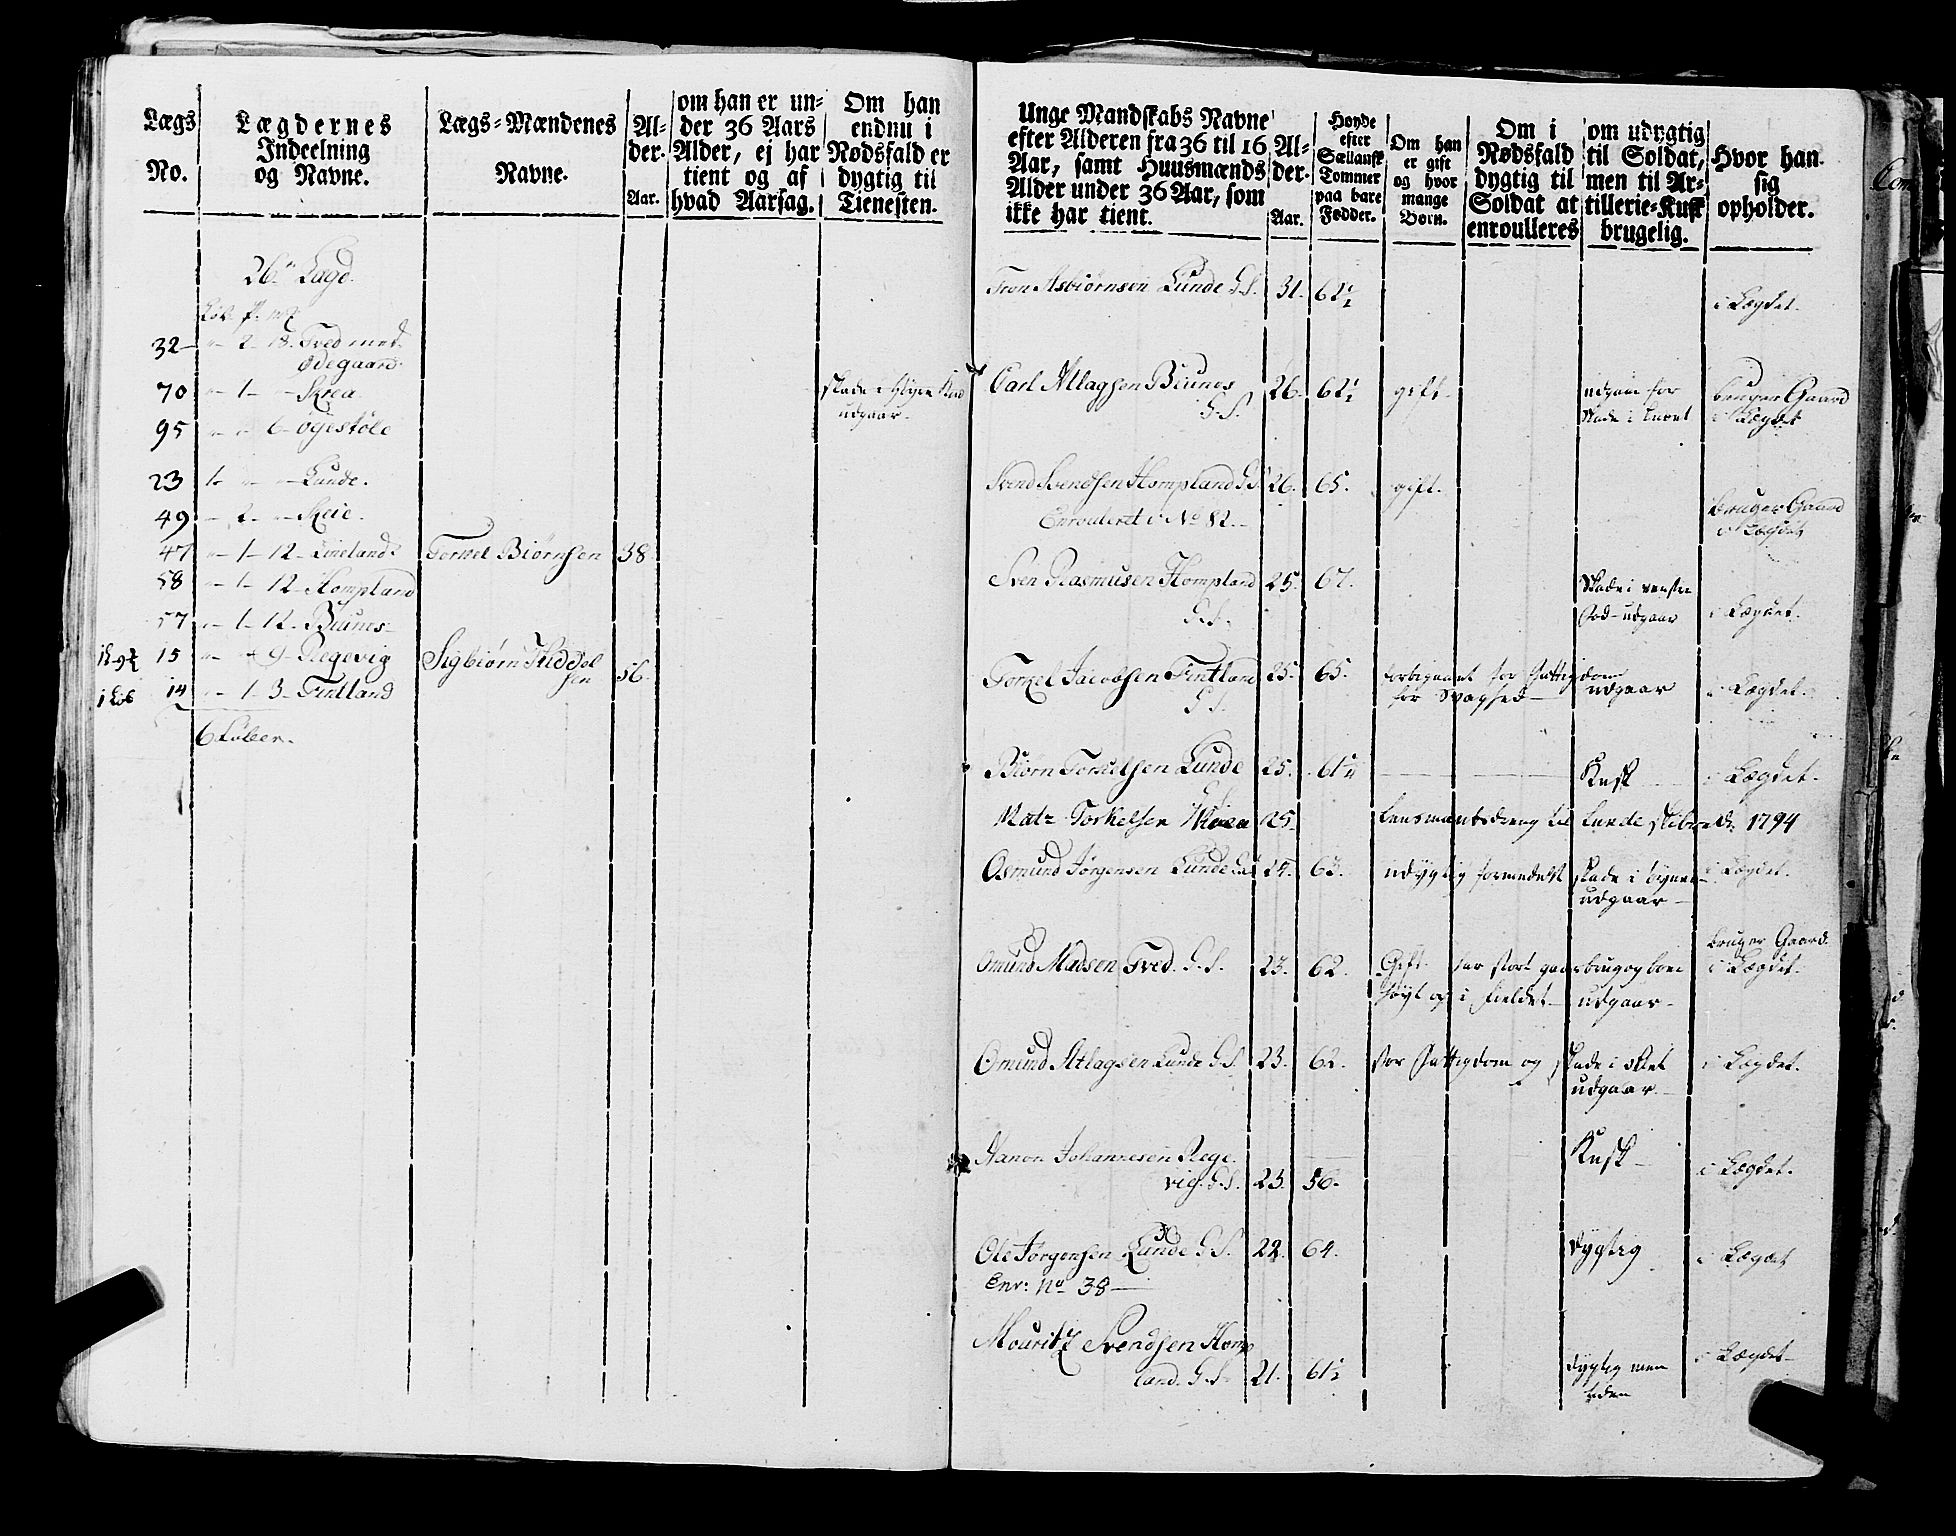 Lægs
No.
Lægdernes
Indeelning
og Navne.
Lægs-Mændenes
Navne.
Al-
der.
Aar.
om han er un-
der 36 Aars
Alder, ej har
tient og af
hvad Aarsag.
Om han
endnu i
Nødsfald er
dygtig til
Tienesten.
26 Lægd.
32 - 2 - 18. Tved med
Ødegaard.
70 - 1 - Skrea
95 - 6 - Øgestøle
23 1 - Lunde.
49 - 2 - Skeie.
47 - 1 - 12 - Lineland
58 - 1 - 12 - Hompland
57 - 1 - 12 - Biunes
15 - 9 - Regevig
14 - 1 - 3 - Fintland
6 Løber.
Torkel Biørnsen 38
Sigbiørn
sen 56.
skade i
udgaar.
Unge Mandskabs Navne
efter Alderen fra 36 til 16
Aar, samt Huusmænds
Alder under 36 Aar, som
ikke har tient.
Al-
der.
Aar.
Høyde
efter
Siællansk
Tommer
paa bare
Fødder.
Om han
er gift
og hvor
mange
Børn.
Om i
Nødsfald
dygtig til
Soldat at
enroulleres
om udygtig
til Soldat,
men til Ar-
tillerie-Kusk
brugelig.
Hvor han
sig
opholder.
Tron Asbiørnsen Lunde G.S. 31. 62½ i Lægdet.
Carl Atlagsen Biunes 26. 62½ gift. udgaar for bruger Gaard
G.S. skade i Laaret i Lægdet
Svend Svendsen Hompland G.S. 26. 65. gift. bruger Gaard
Enrouleret i No 82. i Lægdet
Sven Rasmusen Hompland 25. 67. skade i venstre
G.S. Fod udgaar i Lægdet.
Torkel Jacobsen Fintland 25. 65. for fattigdom
G.S. for Svaghed udgaar i Lægdet.
Biørn Torkelsen Lunde 25. 61¼ Kusk i Lægdet.
G.S.
Matz Torkelsen Skrea 25. Lensmandsdreng til Lunde skibrede 1794
Osmund Jørgensen Lunde G.S. 24. 63. udygtig formedelst skade i i Lægdet.
udgaar
Omund Madsen Tved. G.S. 23. 62. Gift. har stort gaardbrug og boer bruger Gaard
høyt op i fieldet udgaar. i Lægdet.
Omund Atlagsen Lunde G.S. 23. 62. stor fattigdom og skade i i Lægdet.
udgaar.
Aanon Johannesen Rege
vig. G.S. 23. 56. Kusk i Lægdet.
Ole Jørgensen Lunde G.S. 22. 64. dygtig i Lægdet
Enr: No 38
Mouritz Svendsen Homp
land. G.S. 21. 61½ dygtig men i Lægdet
liden